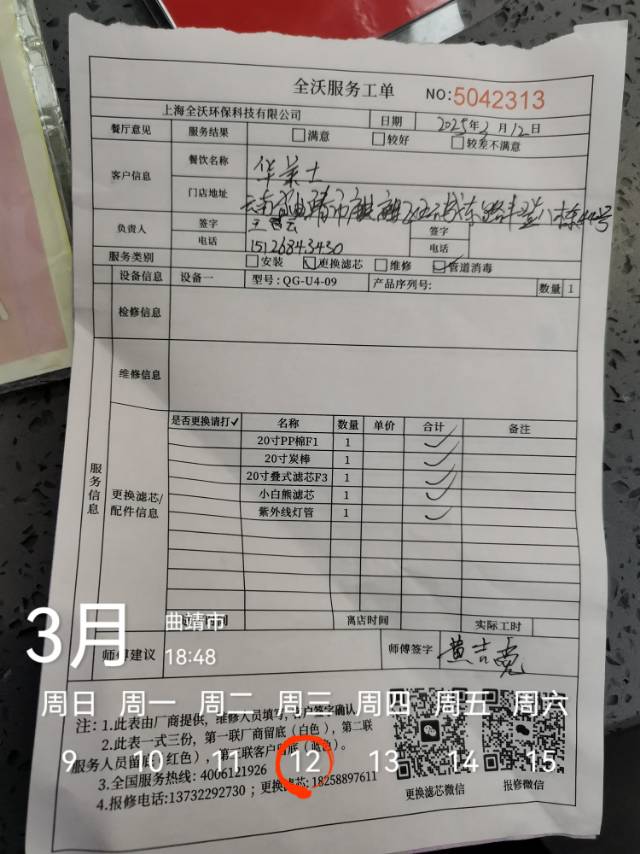 全沃服务工单 NO:5042313
上海全沃环保科技有限公司 日期 2025年3月12日
餐厅意见 服务结果 满意 较好 较差不满意
客户信息 餐饮名称 华莱士
门店地址 云南省曲靖市麒麟区
负责人 签字 签字
电话 15126843430 电话
服务类别 安装 更换滤芯 维修 管道消毒
设备信息 设备一 型号:QG-U4-09 产品序列号: 数量 1
检修信息
维修信息
服务信息
更换滤芯/配件信息
是否更换请打✓ 名称 数量 单价 合计 备注
20寸PP棉F1 1 ✓
20寸炭棒 1 ✓
20寸叠式滤芯F3 1 ✓
小白熊滤芯 1 ✓
紫外线灯管 1 ✓
离店时间 实际工时
师傅建议 师傅签字
3月 曲靖市
18:48
周日 周一 周二 周三 周四 周五 周六
9 10 11 12 13 14 15
注:1.此表由厂商提供，维修人员填写，客户签字确认
2.此表一式三份，第一联厂商留底(白色)，第二联
服务人员留底(红色)，第三联客户留底(蓝色)。
3.全国服务热线:4006121926
4.报修电话:13732292730；更换滤芯:18258897611
更换滤芯微信 报修微信